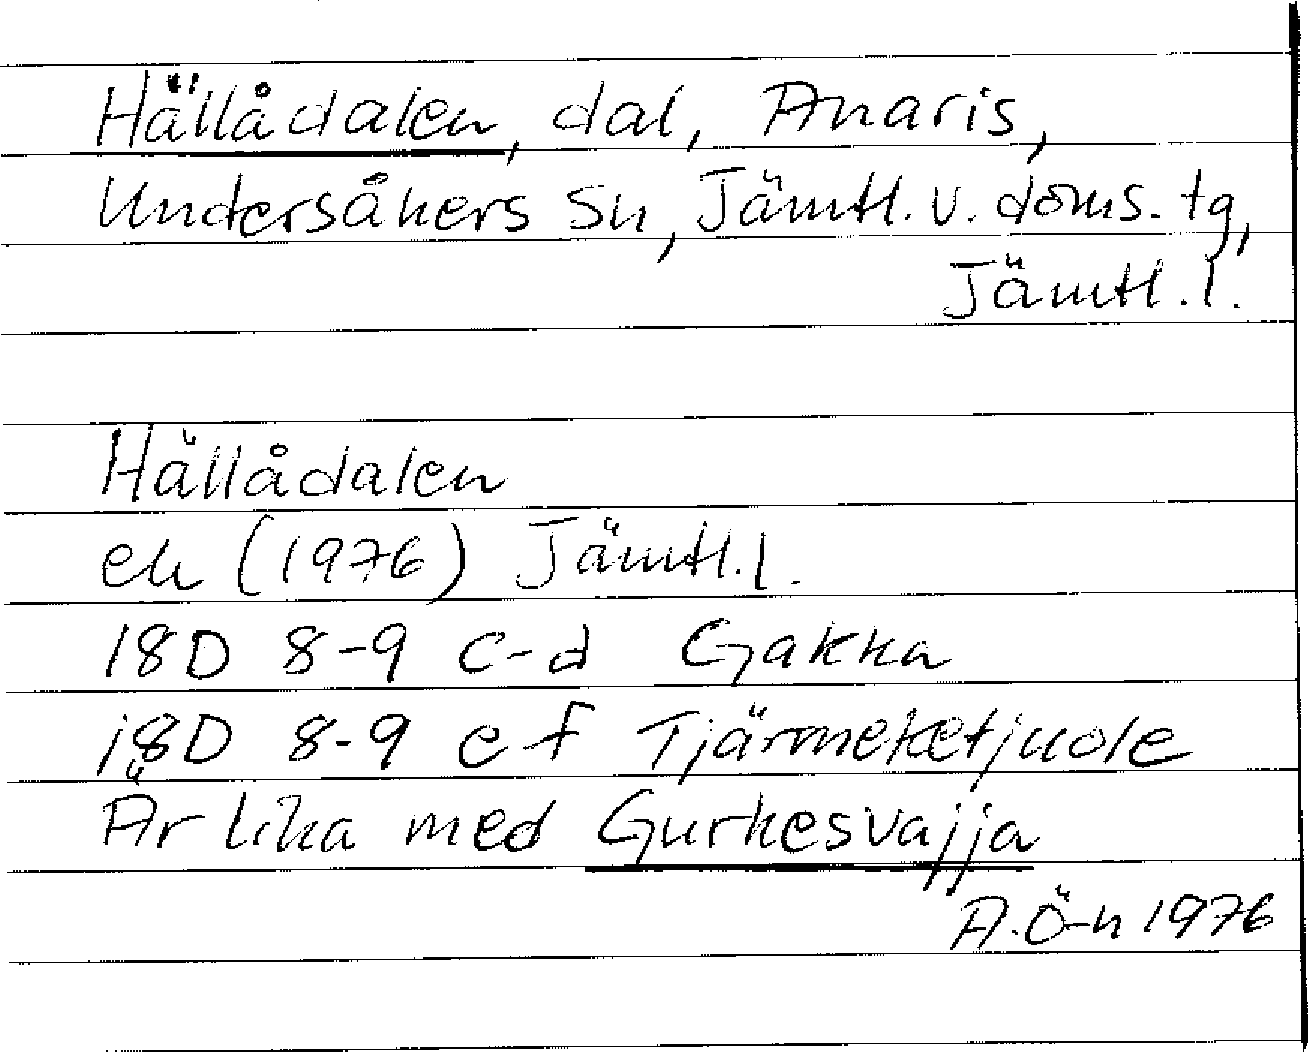 Hällådalen, dal, Anaris,
Undersåkers sn, Jämtl. v. doms. tg,
Jämtl. l.
Hällådalen
ek (1976) Jämtl. l.
18D 8-9 c-d Gakka
18D 8-9 e f Tjärmeketjuole
Är lika med Gurkesvajja
A. Ö-n 1976